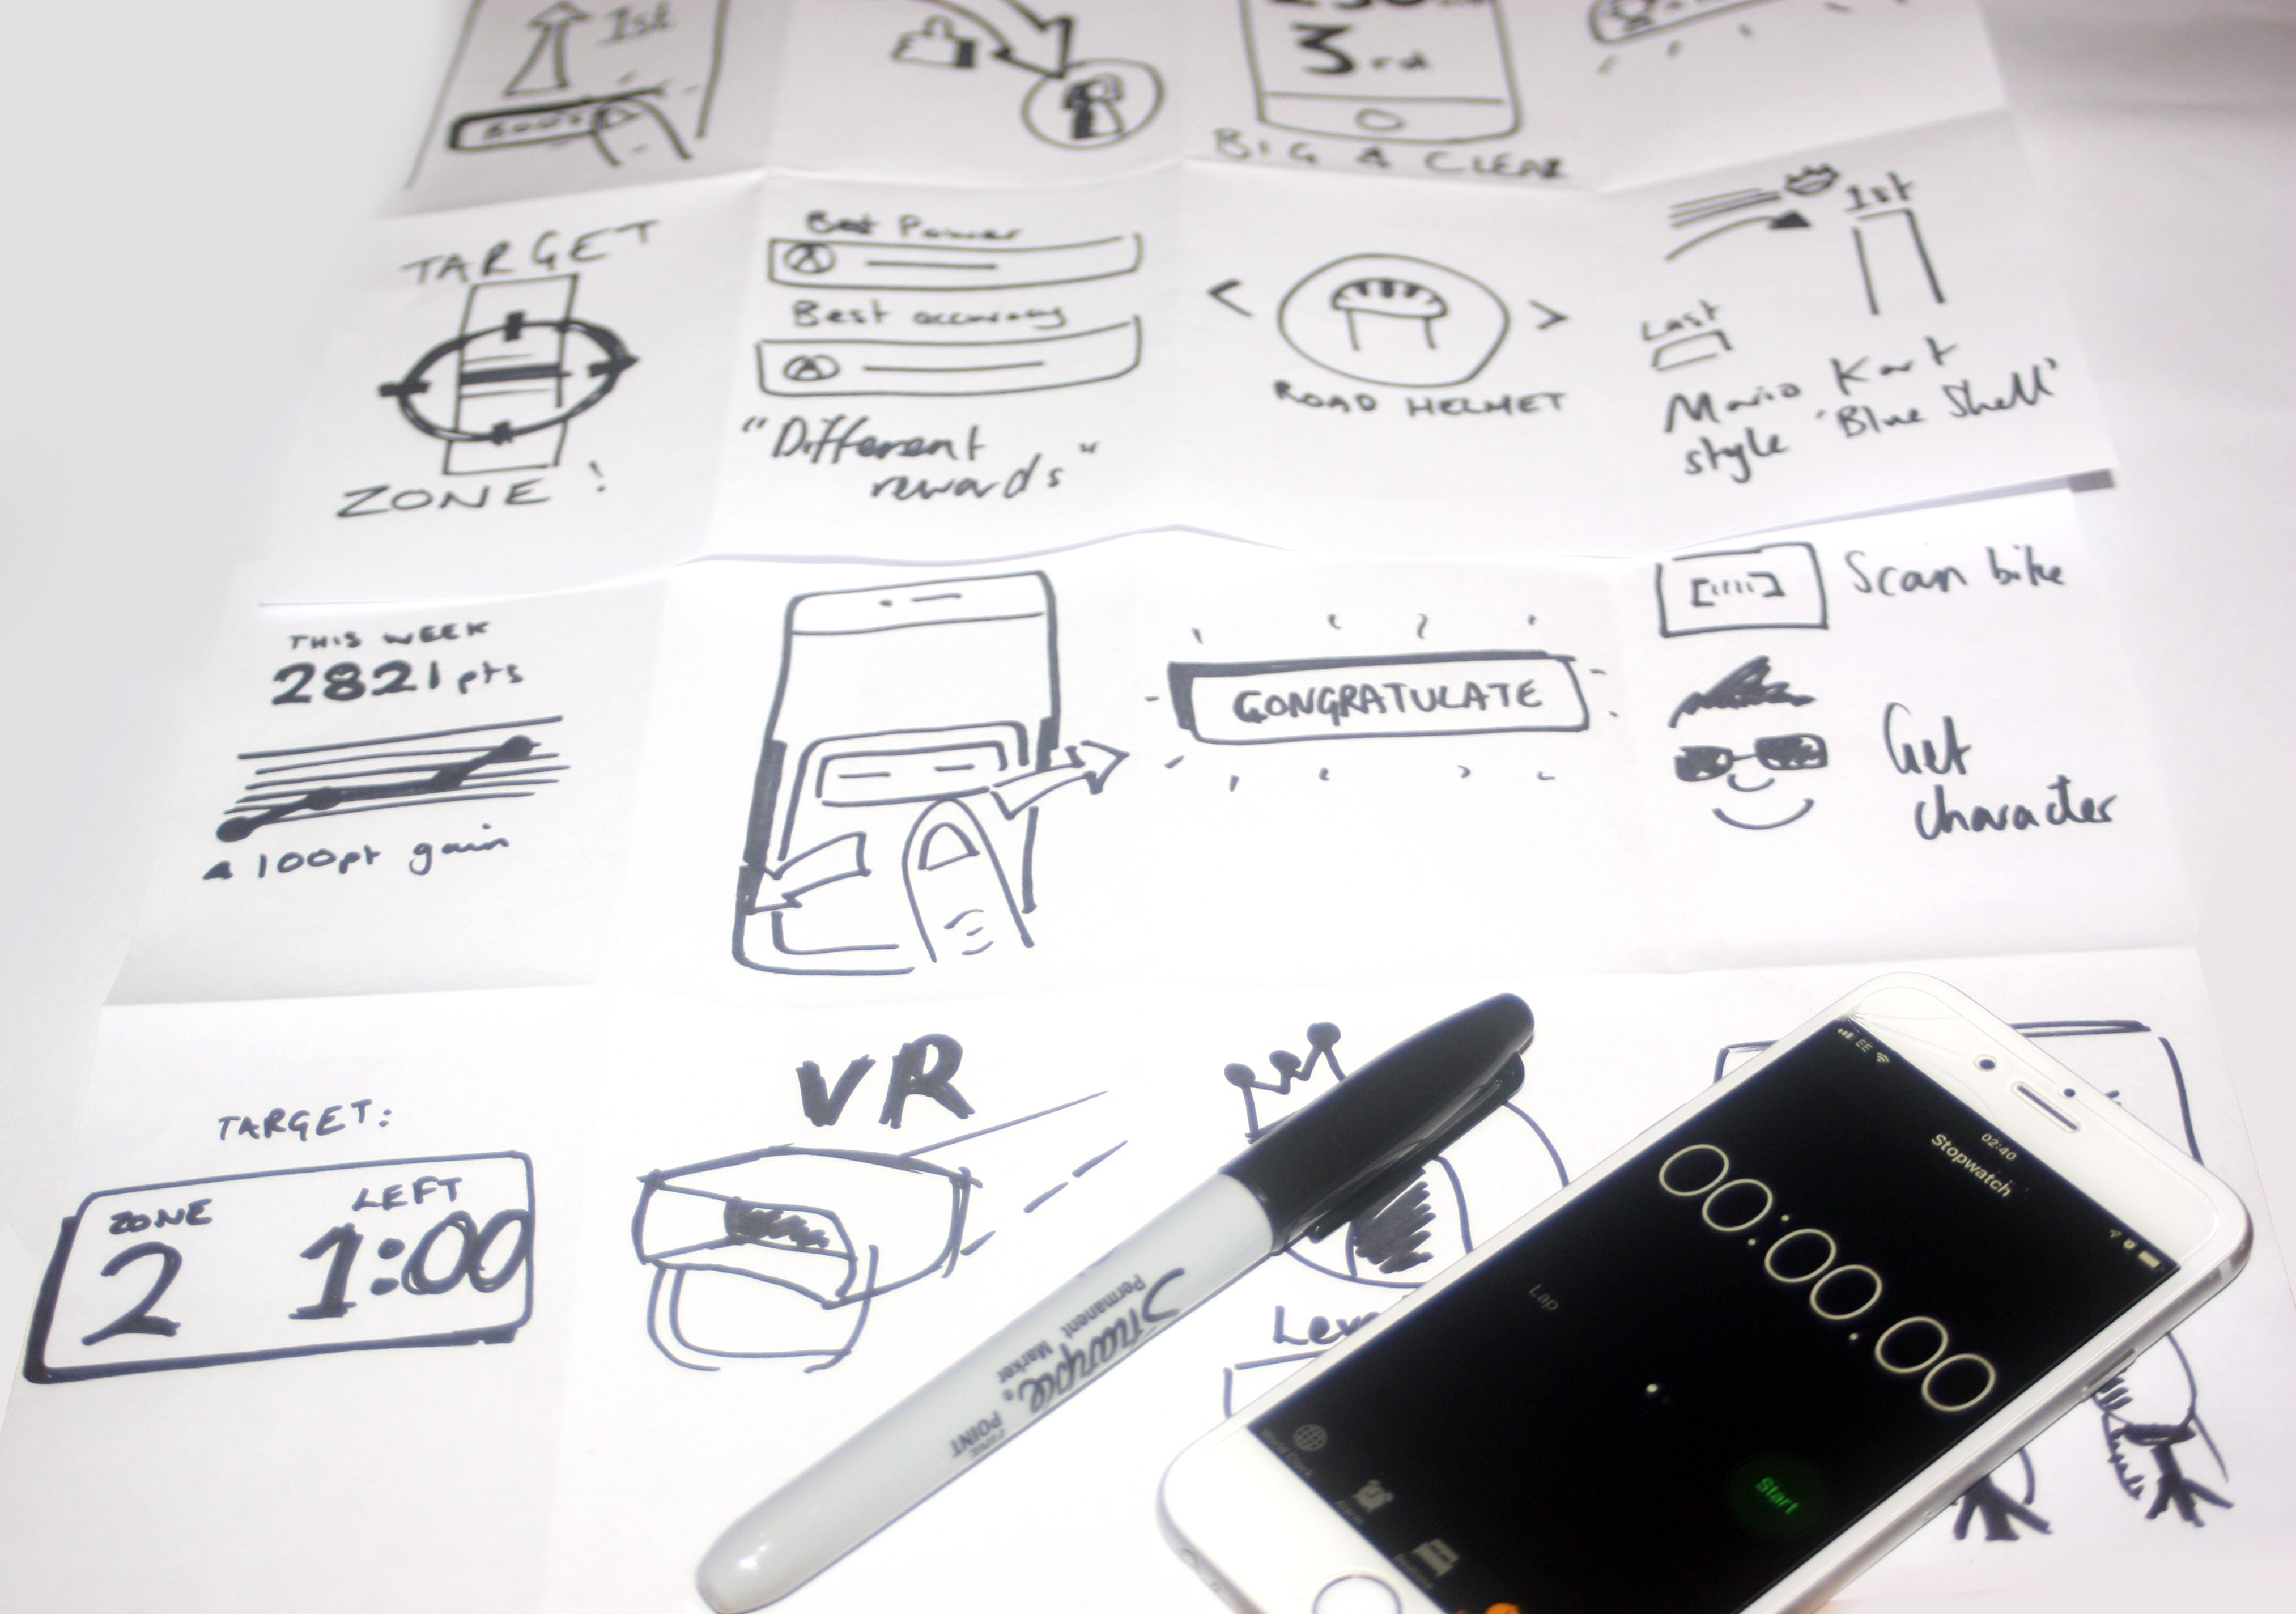 1st
BOOST
3rd
BIG & CLEAR
TARGET
ZONE!
Best Power
Best accuracy
"Different
rewards"
< >
ROAD HELMET
1st
Last
Mario Kart
style 'Blue Shell'
THIS WEEK
2821pts
100pt gain
CONGRATULATE
Scan bike
Get
character
TARGET:
ZONE LEFT
2 1:00
VR
Sharpie
Permanent Marker
FINE POINT
EE
02:40
Stopwatch
00:00.00
Lap
Start
World Clock
Alarm